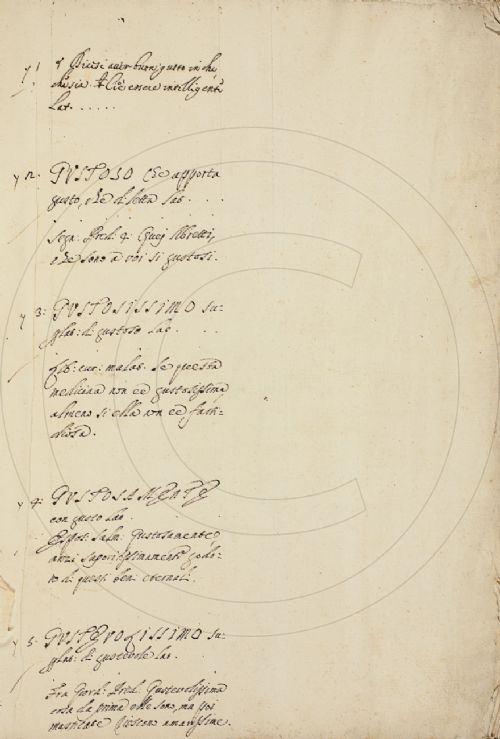 y 1 § Dicesi aver buon gusto in che
che sia. Cioè essere intelligente
Lat. . . . . .
y 2. GUSTOSO Che apporta
gusto, che diletta Lat. . . .
Segn. Pred. 4. Quei libretti,
che sono a voi si gustosi.
y 3: GUSTOSISSIMO Su-
perl: di gustoso Lat. . .
Lib: cur: malat. Se questa
medicina non è gustosissima,
almeno si ella non è fasti-
diosa.
y 4: GUSTOSAMENTE
con gusto Lat.
Espos: Salm: Gustosamente,
anzi saporitissimamente godo-
no di questi beni eternali.
y 5: GUSTEVOLISSIMO Su-
perl: di gustevole Lat.
Fra Giord: Pred: Gustevolissima
cosa da prima elle sono, ma poi
masticate riescono amarissime.